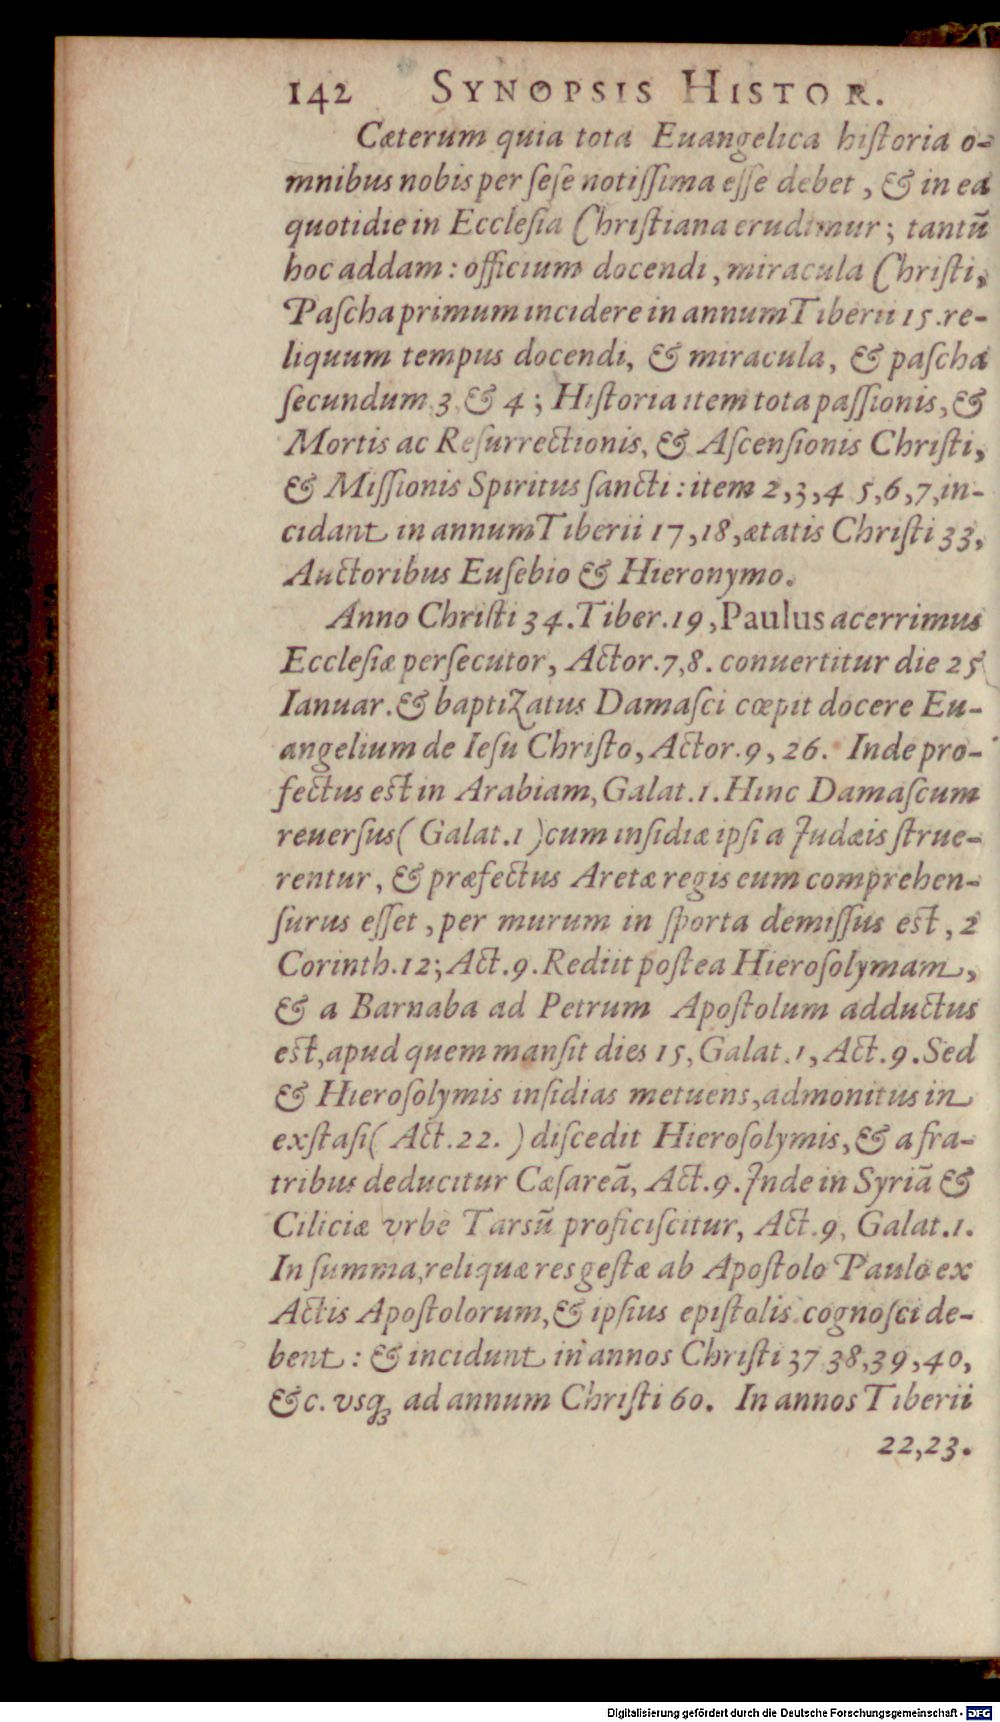 142 SYNOPSIS HISTOR.
Cæterum quia tota Euangelica hiſtoria o-
mnibus nobis per ſeſe notiſſima eſſe debet, & in ea
quotidie in Eccleſia Chriſtiana erudimur; tantũ
hoc addam: officium docendi, miracula Chriſti,
Paſcha primum incidere in annum Tiberii 15. re-
liquum tempus docendi, & miracula, & paſcha
ſecundum 3 & 4; Hiſtoria item tota paſſionis, &
Mortis ac Reſurrectionis, & Aſcenſionis Chriſti,
& Miſſionis Spiritus ſancti: item 2,3,4 5,6,7, in-
cidant in annum Tiberii 17, 18, ætatis Chriſti 33,
Auctoribus Euſebio & Hieronymo.
Anno Chriſti 34. Tiber. 19, Paulus acerrimus
Eccleſiæ perſecutor, Actor. 7,8. conuertitur die 25
Ianuar. & baptizatus Damaſci cœpit docere Eu-
angelium de Ieſu Chriſto, Actor. 9, 26. Inde pro-
fectus est in Arabiam, Galat. 1. Hinc Damaſcum
reuerſus ( Galat. 1 ) cum inſidiæ ipſi a Judæis ſtrue-
rentur, & præfectus Aretæ regis eum comprehen-
ſurus eſſet, per murum in ſporta demiſſus est, 2
Corinth. 12; Act. 9. Rediit poſtea Hieroſolymam,
& a Barnaba ad Petrum Apoſtolum adductus
est, apud quem manſit dies 15, Galat. 1, Act. 9. Sed
& Hieroſolymis inſidias metuens, admonitus in
exſtaſi ( Act. 22. ) diſcedit Hieroſolymis, & a fra-
tribus deducitur Cæſareã, Act. 9. Inde in Syriã &
Ciliciæ vrbe Tarsũ proficiſcitur, Act. 9, Galat. 1.
In ſumma, reliquæ res geſtæ ab Apoſtolo Paulo ex
Actis Apoſtolorum, & ipſius epiſtolis cognoſci de-
bent: & incidunt in annos Chriſti 37 38, 39, 40,
&c. vsq; ad annum Chriſti 60. In annos Tiberii
22,23.
Digitalisierung gefördert durch die Deutsche Forschungsgemeinschaft - DFG